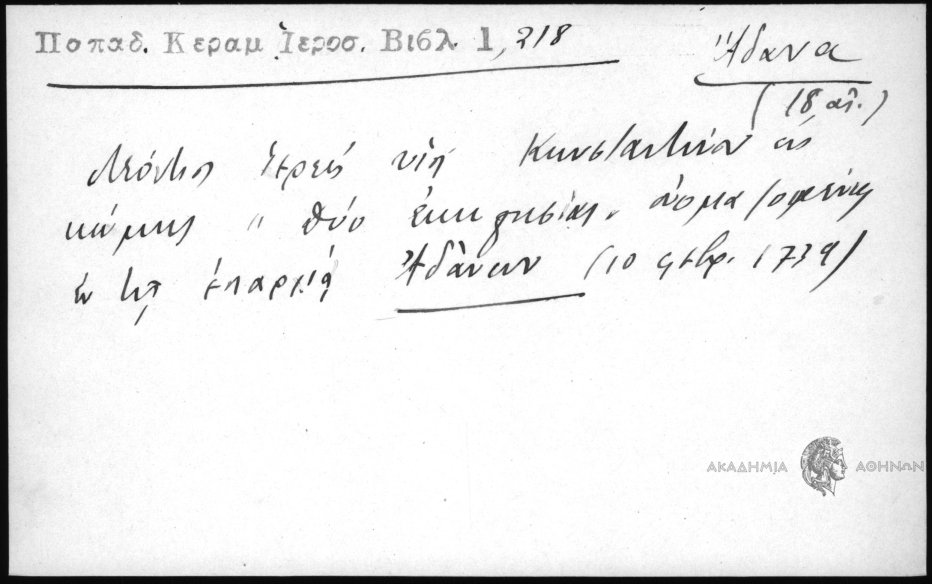 Ποπαδ. Κεραμ Ἱεροσ. Βιβλ 1, 218
Ἄδανα
(18 αἰ.)
Λεόντιος ἱερεύς υἱός Κωνσταντίνου ἐκ
κώμης " δύο ἐκκλησίαι" ὀνομα
ἐν τῇ ἐπαρχίᾳ Ἀδάνων (10 φεβρ. 1739)
ΑΚΑΔΗΜΙΑ ΑΘΗΝΩΝ